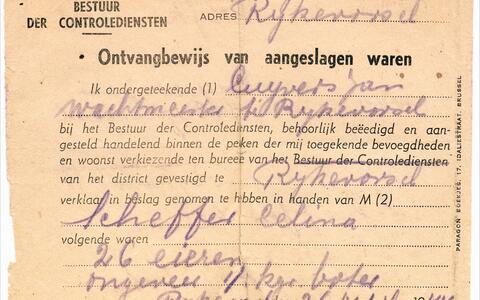 BESTUUR
DER CONTROLEDIENSTEN
ADRES Rykevorsel
Ontvangbewijs van aangeslagen waren
Ik ondergeteekende (1) Cuyvers Jan
wachtmeester te Rykevorsel
bij het Bestuur der Controlediensten, behoorlijk beëedigd en aan-
gesteld handelend binnen de peken der mij toegekende bevoegdheden
en woonst verkiezende ten bureele van het Bestuur der Controlediensten
van het district gevestigd te Rykevorsel
verklaar in beslag genomen te hebben in handen van M (2)
Scheffer Celina
volgende waren
26 eieren
ongeveer kgr boter
PARAGON BOEKJES, 17, IDALIESTRAAT, BRUSSEL